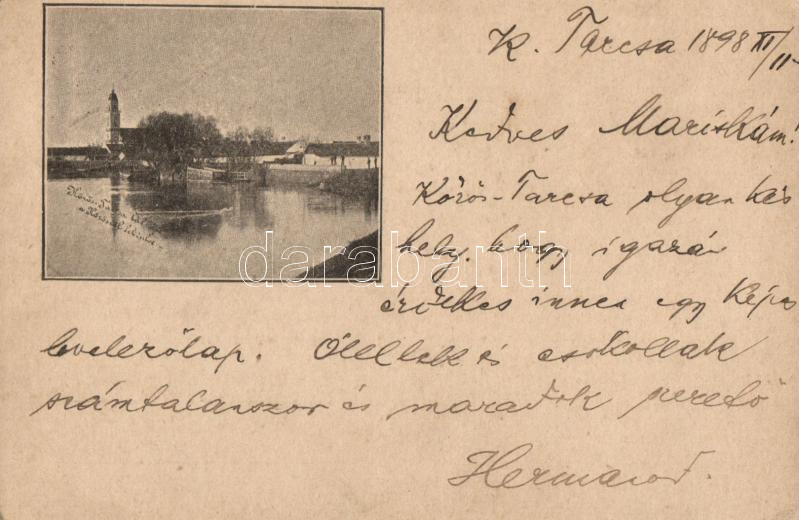 K. Tarcsa 1898 XI/11
Kedves Mariskám!
Körös-Tarcsa olyan kis
hely, hogy igazán
érdekes innen egy képes
levelezőlap. Ölellek és csókollak
számtalanszor és maradok szerető
Hermanod.
darabanth